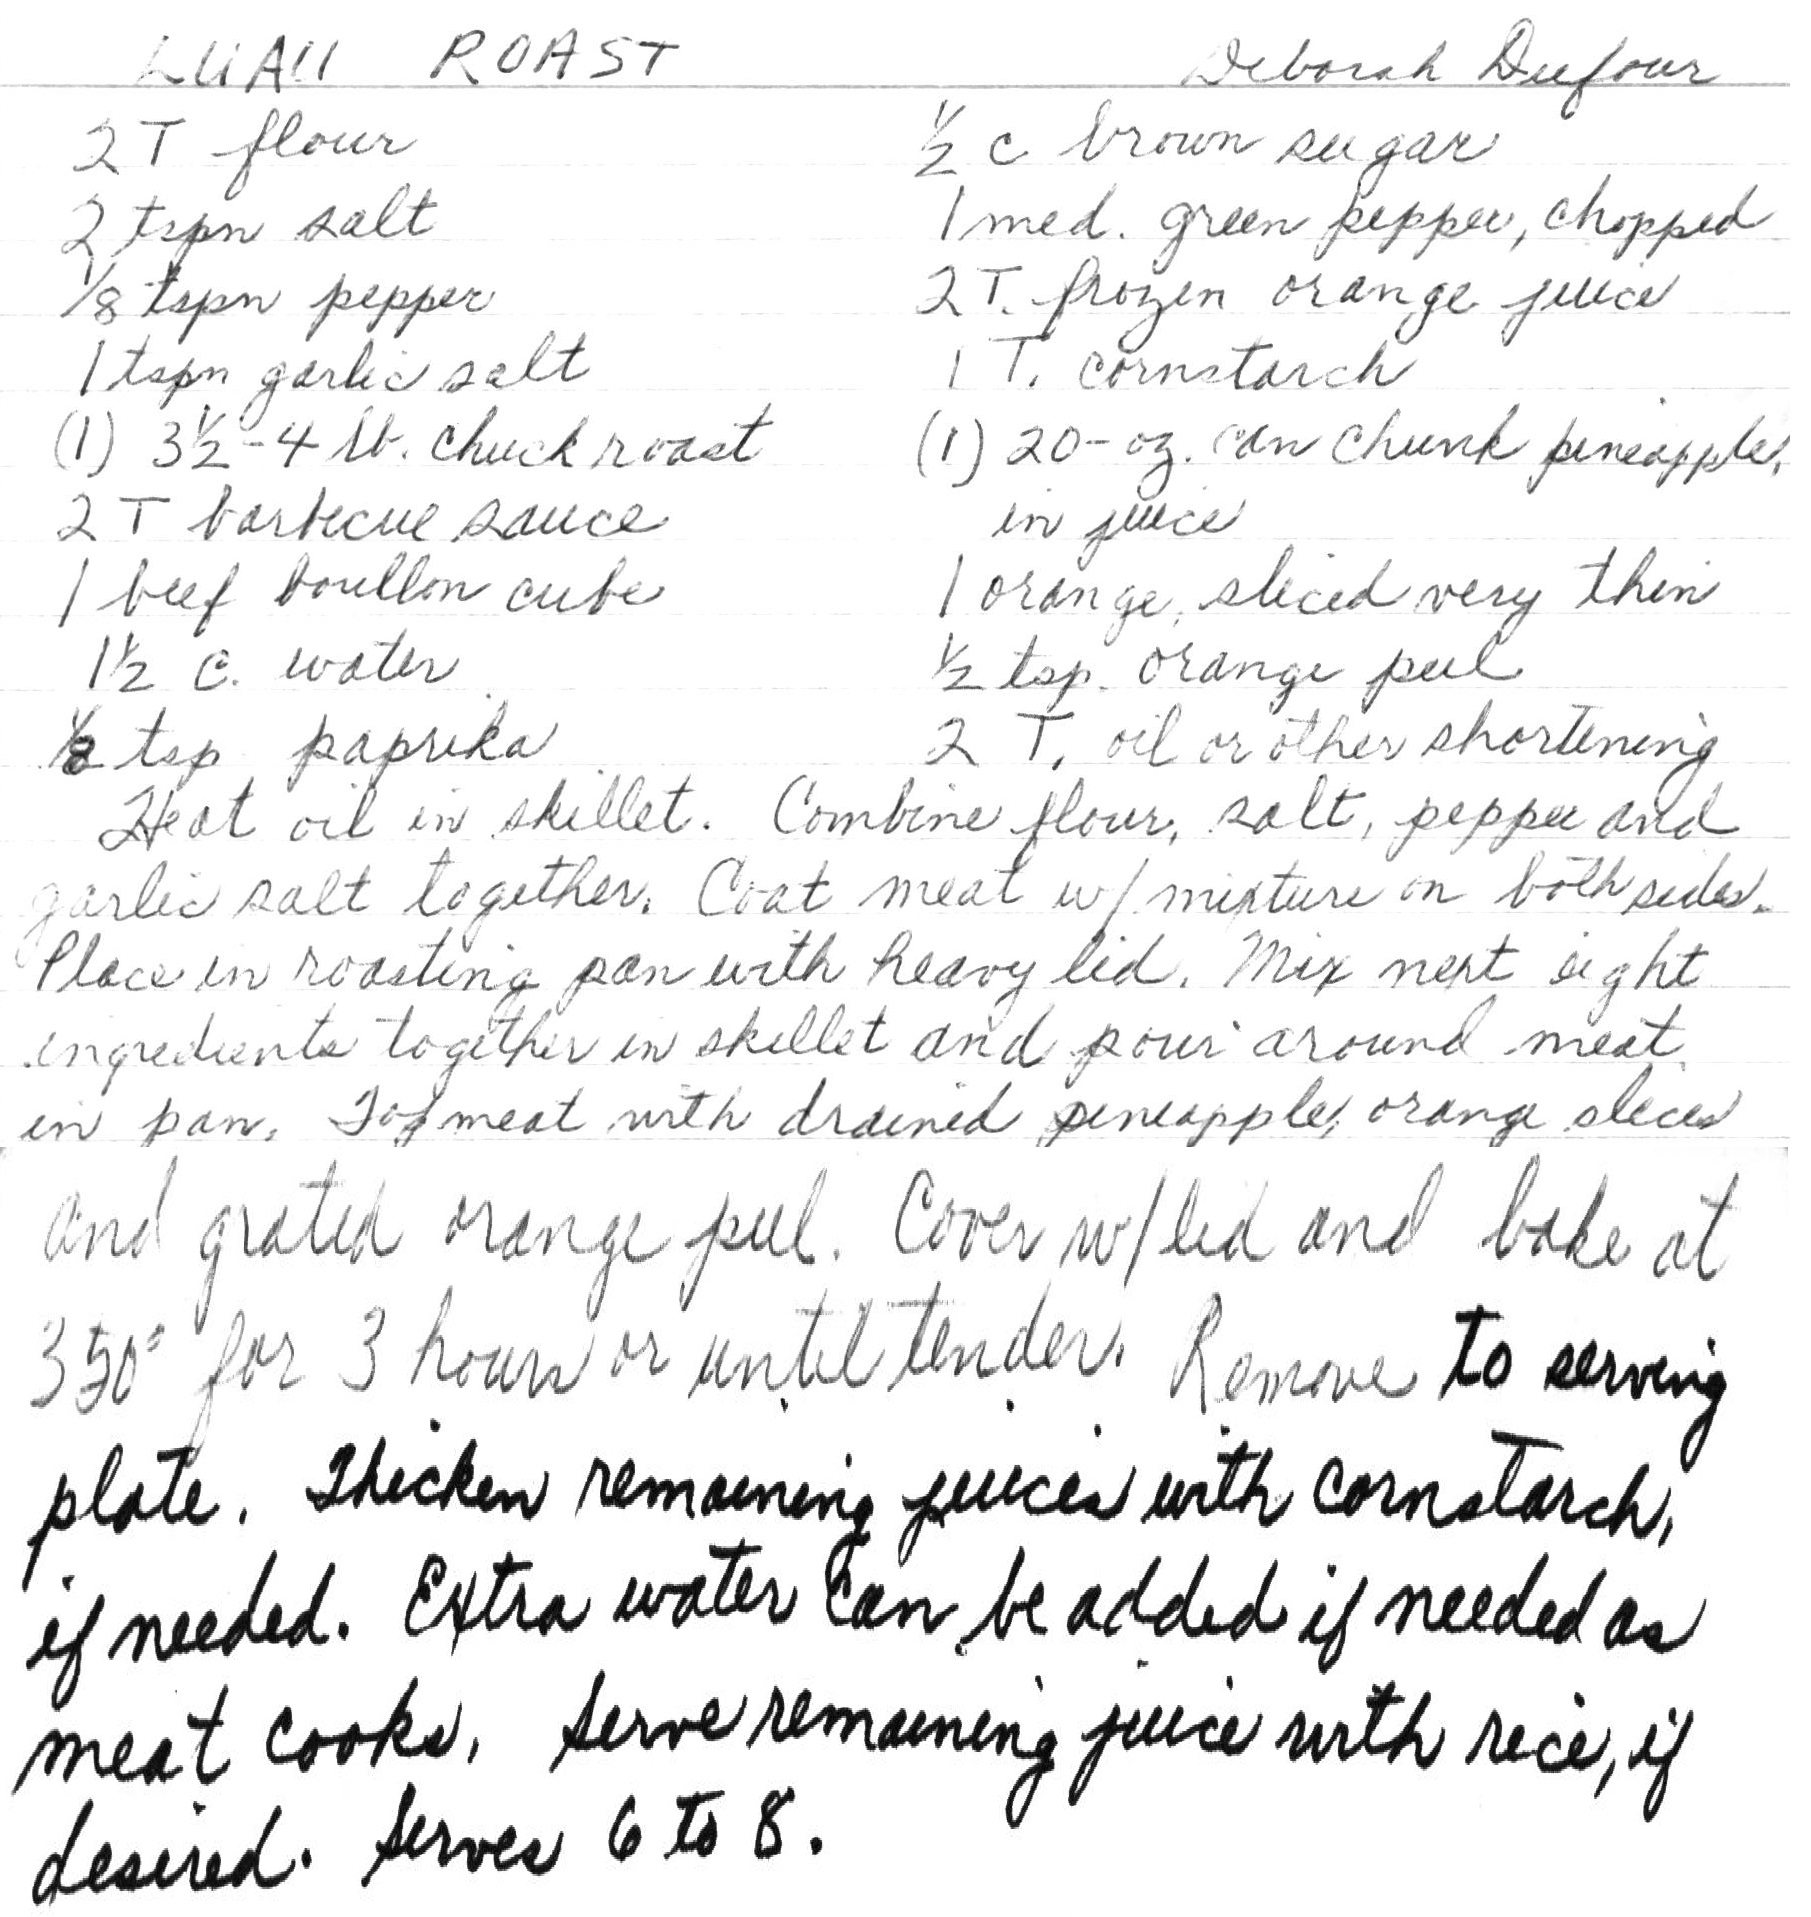 LUAU ROAST
Deborah Dufour
2 T flour
2 tspn salt
1/8 tspn pepper
1 tspn garlic salt
(1) 3½-4 lb. chuck roast
2 T barbecue sauce
1 beef boullon cube
1½ c. water
tsp paprika
½ c brown sugar
1 med. green pepper, chopped
2 T. frozen orange juice
1 T. cornstarch
(1) 20-oz. can chunk pineapple,
in juice
1 orange, sliced very thin
½ tsp. orange peel
2 T. oil or other shortening
Heat oil in skillet. Combine flour, salt, pepper and
garlic salt together. Coat meat w/ mixture on both sides.
Place in roasting pan with heavy lid. Mix next eight
ingredients together in skillet and pour around meat
in pan. Top meat with drained pineapple, orange slices
and grated orange peel. Cover w/ lid and bake at
350° for 3 hours or until tender. Remove to serving
plate. Thicken remaining juices with cornstarch,
if needed. Extra water can be added if needed as
meat cooks. Serve remaining juice with rice, if
desired. Serves 6 to 8.